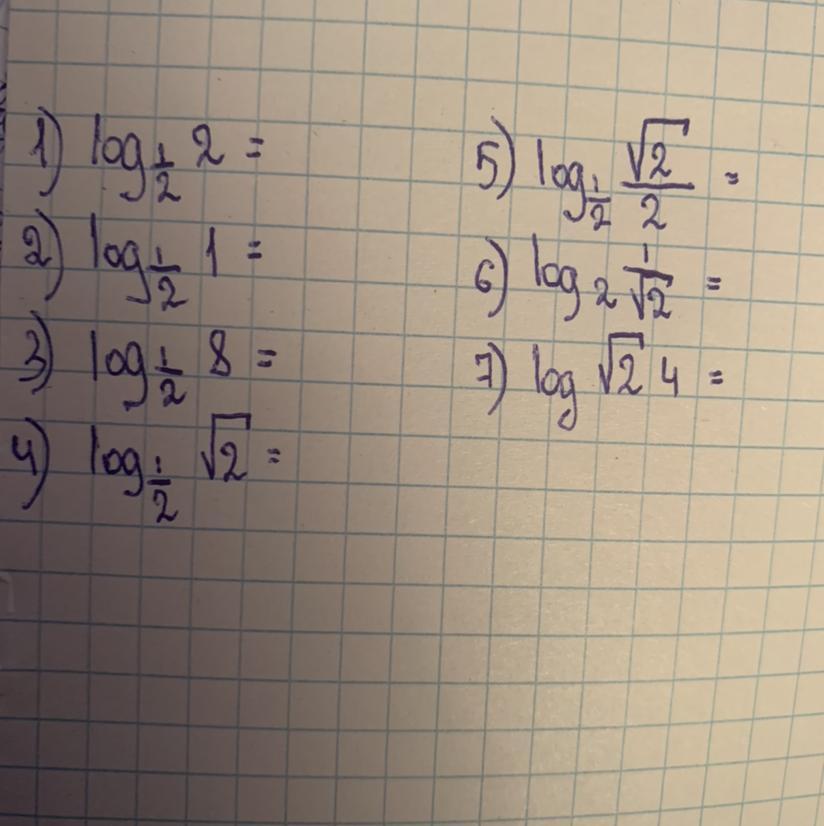 1) log_{1/2} 2 =
2) log_{1/2} 1 =
3) log_{1/2} 8 =
4) log_{1/2} √2 =
5) log_{1/2} √2/2 =
6) log_2 1/√2 =
7) log √2 4 =